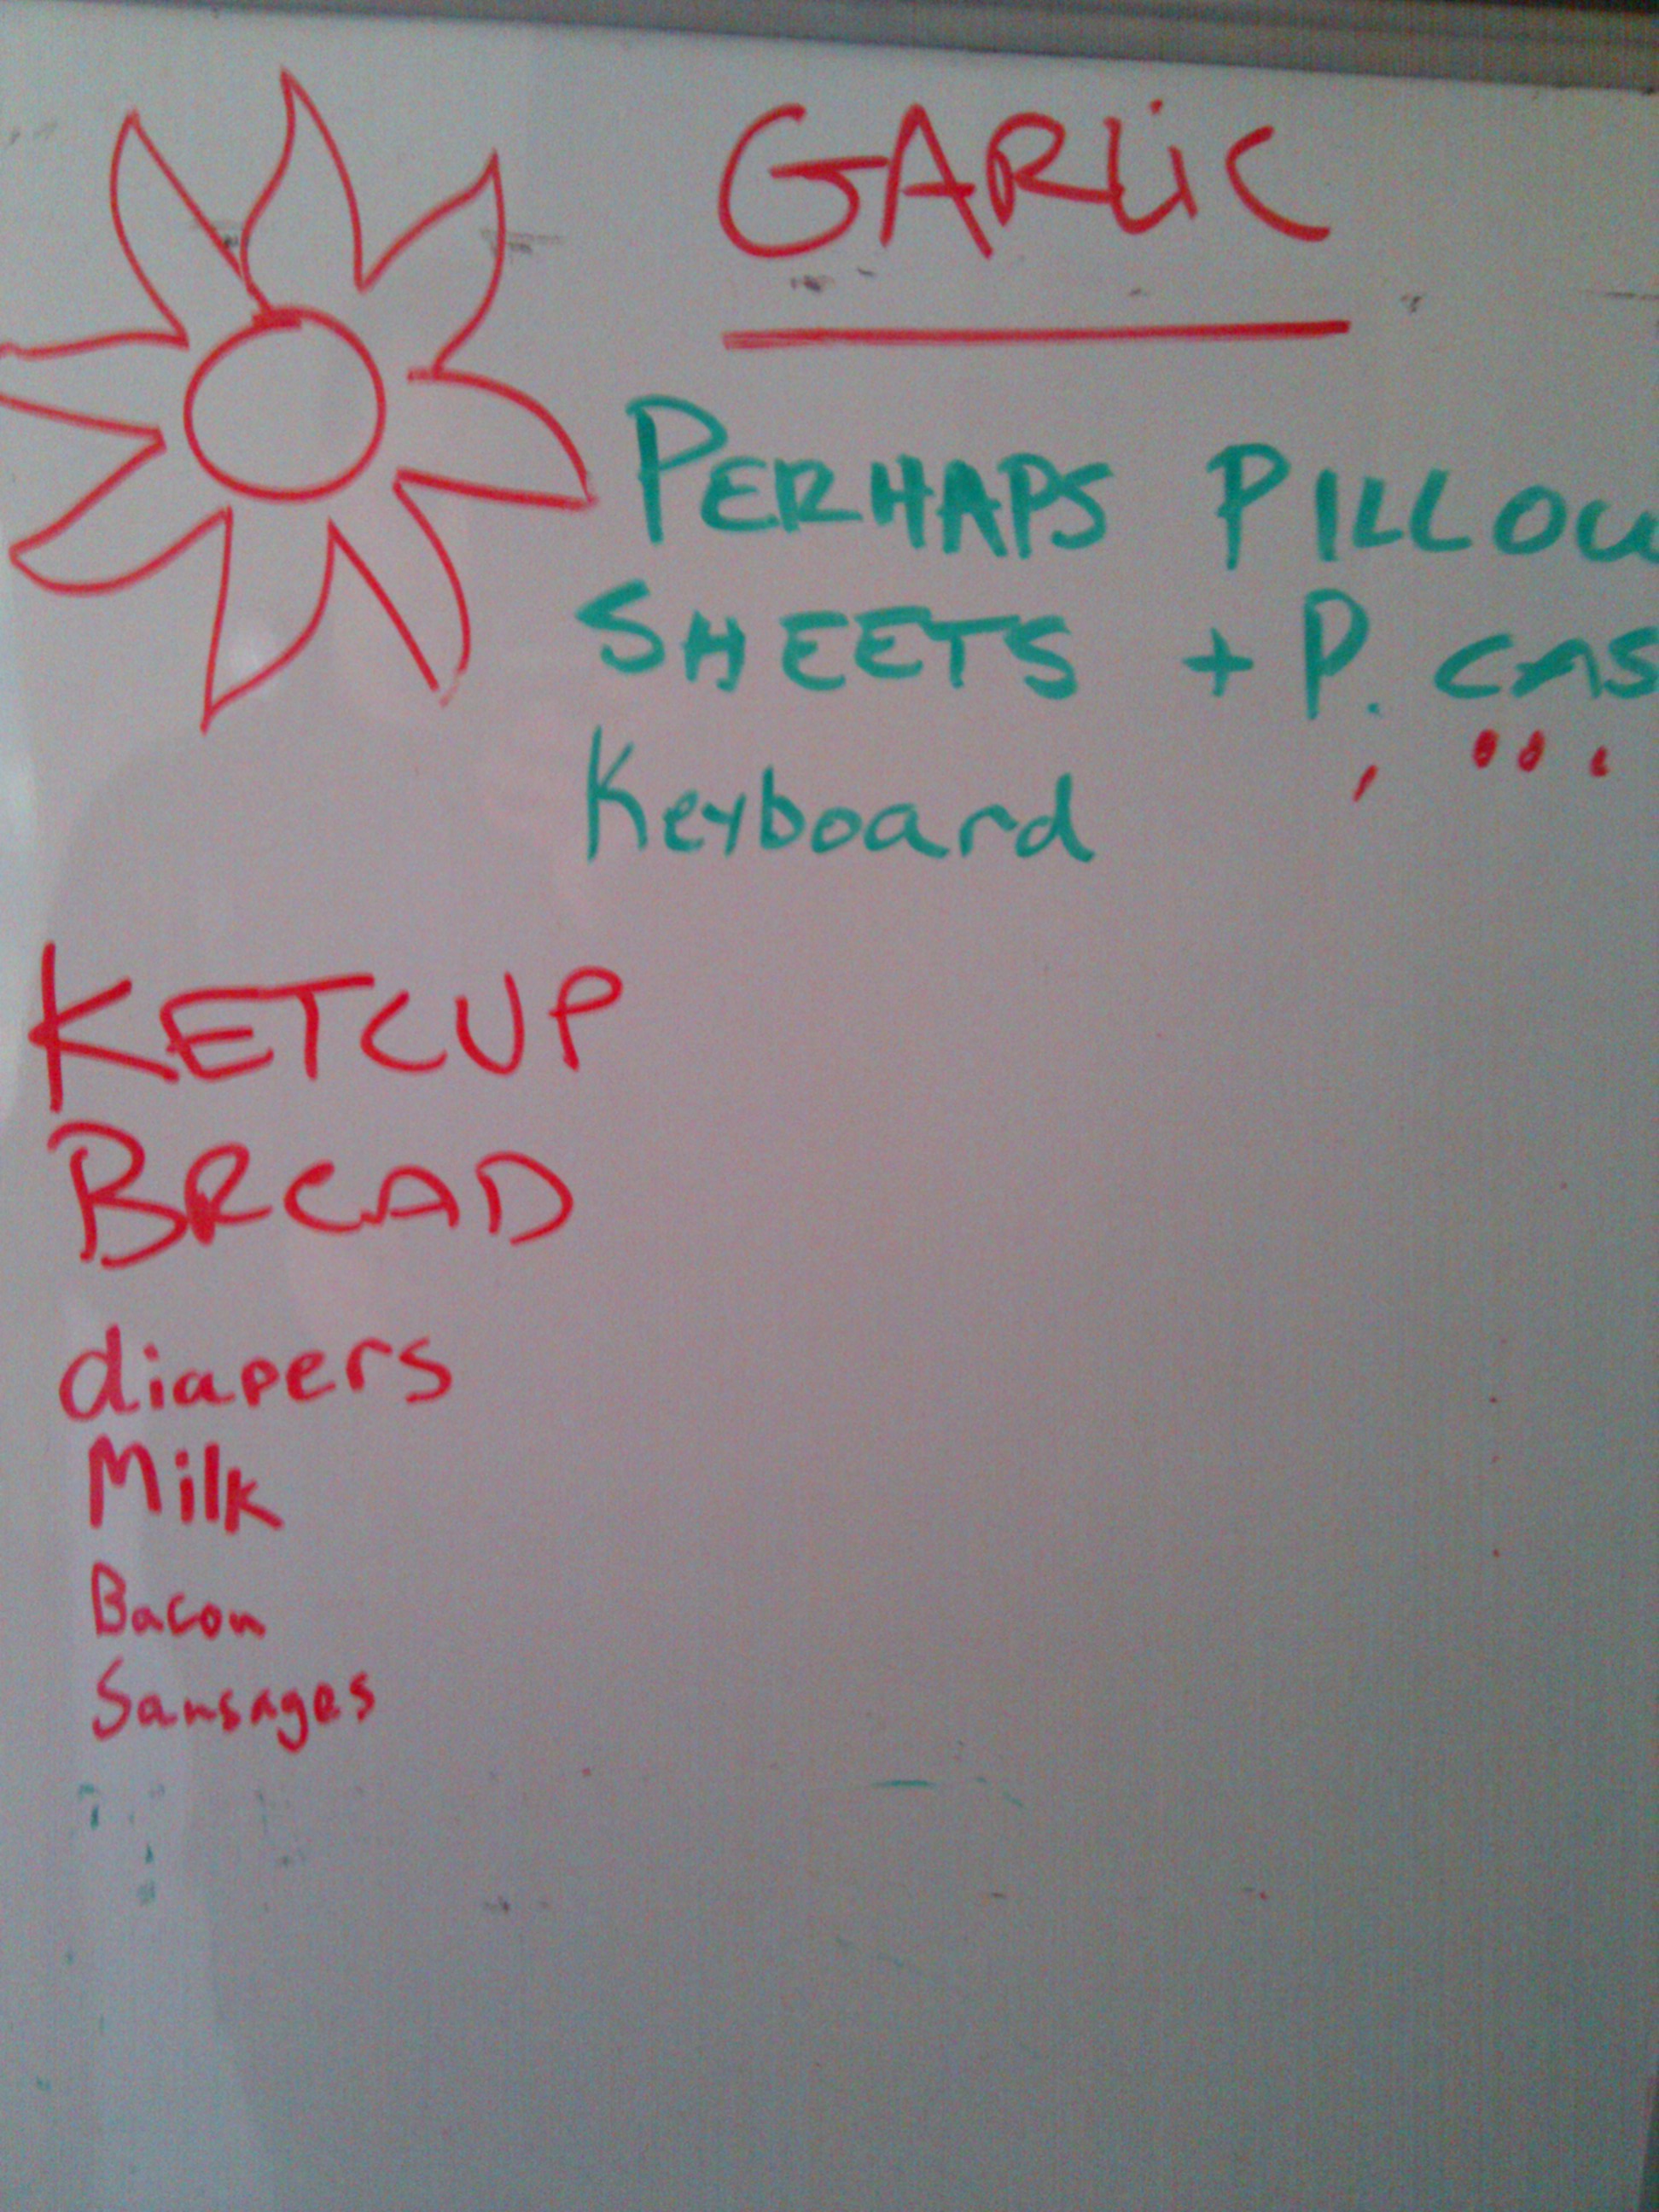 GARLiC
PERHAPS PILLOW
SHEETS + P. CAS
Keyboard
KETCUP
BREAD
diapers
Milk
Bacon
Sausages